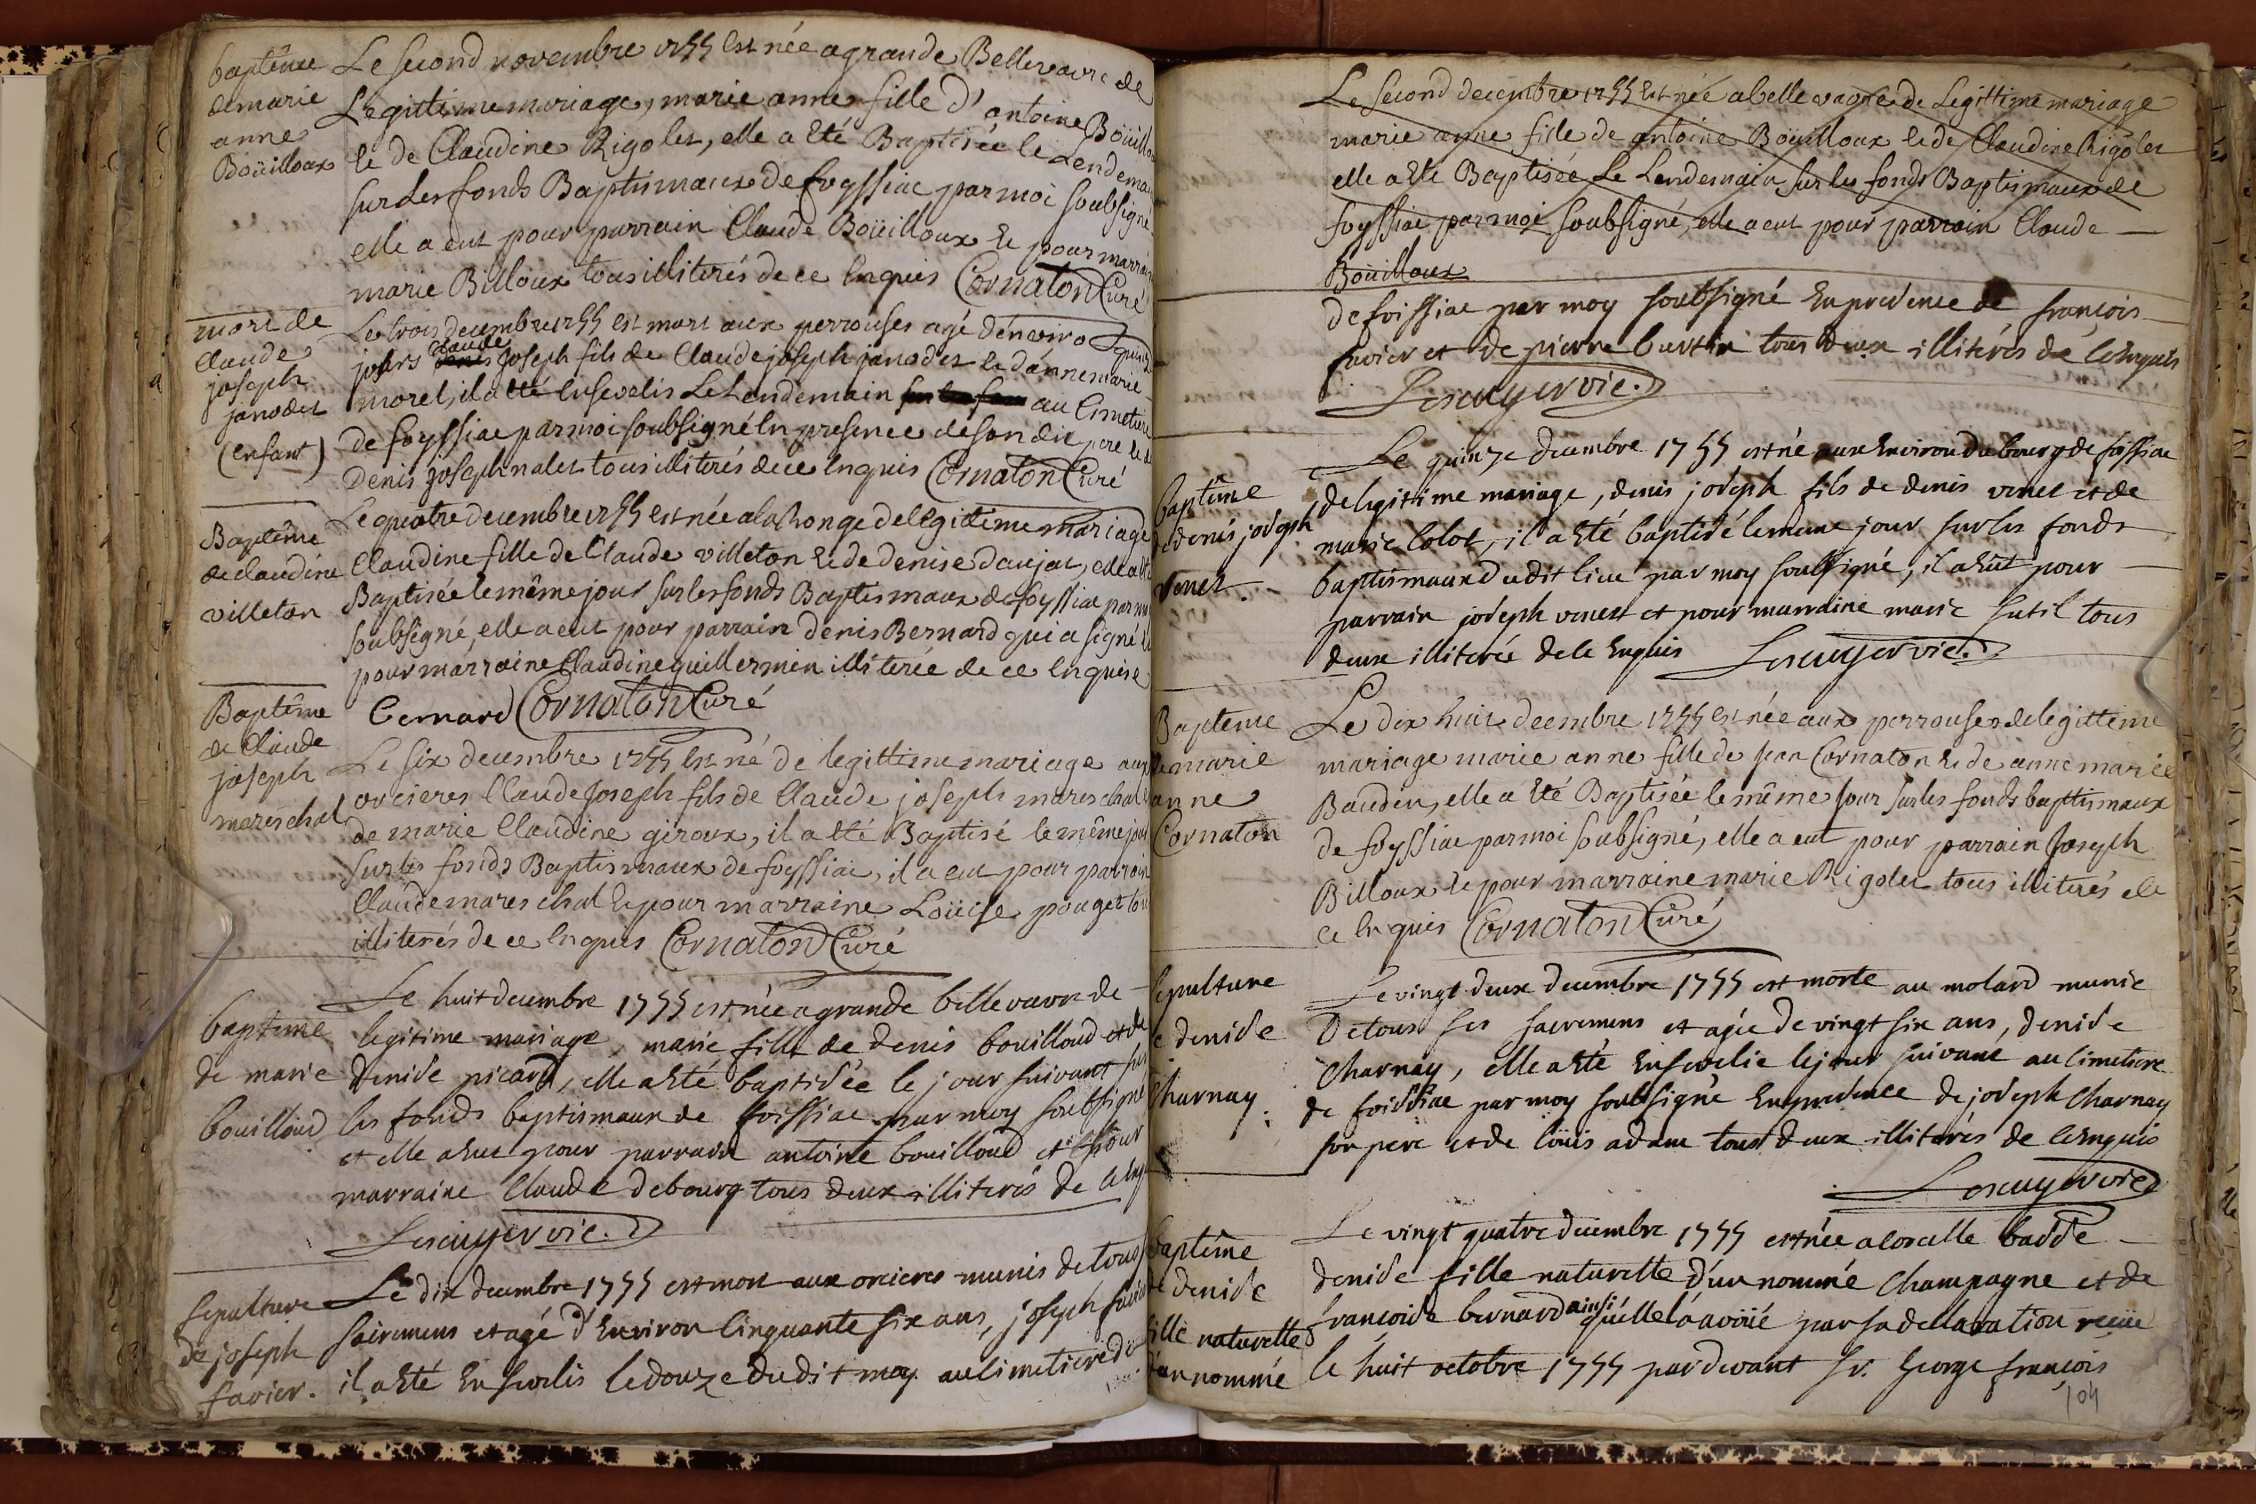 baptême
de marie
anne
Boüilloux
Le second novembre 1755 est née a grande Bellevavre de
Legittime mariage, marie anne fille d'antoine Boüillou
et de Claudine Rigolet, elle a Eté Baptisée le Lendemai
sur Les fonds Baptismaux de foyssiac par moi soubsigné
elle a eut pour parrain Claude Boüilloux et pour marrain
marie Billoux tous illiterés de ce Enquis Cornaton Curé
mort de
Claude
joseph
janodet
(enfant)
Le trois decembre 1755 est mort aux perrouses agé d'environ quinze
jours Claude Joseph fils de Claude joseph janodet et d'anne marie
morel, il a eté Ensevelis Le Lendemain au Cimetiere
de foyssiac par moi soubsigné En presence de son dit pere et de
Denis Joseph nalet tous illiterés de ce Enquis Cornaton Curé
Baptême
de claudine
villeton
Le quatre decembre 1755 est née a la Ronge de legittime mariage
Claudine fille de Claude villeton et de denise daujat, elle a eté
Baptisée le même jour sur les fonds Baptismaux de foyssiac par moi
soubsigné, elle a eut pour parrain denis Bernard qui a signé et
pour marraine Claudine guillermin illiterée de ce Enquise
bernard Cornaton Curé
Baptême
de Claude
joseph
mareschal
Le six decembre 1755 est né de legittime mariage aux
orcieres Claude Joseph fils de Claude joseph mareschal et
de marie Claudine giroux, il a eté Baptisé le même jour
sur les fonds Baptismaux de foyssiac, il a eut pour parrain
Claude mareschal et pour marraine Loüise pouget tous
illiterés de ce Enquis Cornaton Curé
baptême
de marie
bouilloud
Le huit decembre 1755 est née a grande bellevavre de
legitime mariage, marie fille de denis bouilloud et de
denise picard, elle a eté baptisée le jour suivant sur
les fonds baptismaux de foissiac par moy soubsigné
et elle a eut pour parrain antoine bouilloud et pour
marraine Claude debourg tous deux illiterés de ce enq
Lescuyer vic.
sepulture
de joseph
favier.
Le dix decembre 1755 est mort aux orcieres munis de tous
sacremens et agé d'Environ Cinquante six ans, joseph favier
il a eté Ensevelis le douze dudit moy au Cimetiere de
Le second decembre 1755 est née a bellevavre de Legittime mariage
marie anne fille de antoine Boüilloux et de Claudine Rigolet
elle a ete Baptisée Le Lendemain sur les fonds Baptismaux de
foyssiac par moi soubsigné, elle a eut pour parrain Claude
Boüilloux
de foissiac par moy soubsigné En presence de françois
favier et de pierre burtin tous deux illiterés de ce Enquis
Lescuyer vic.
baptême
de denis joseph
venet.
Le quinze decembre 1755 est né aux Environ du bourg de foissiac
de legitime mariage, denis joseph fils de denis venet et de
marie Colot, il a eté baptisé le meme jour sur les fonds
baptismaux dudit lieu par moy soubsigné, il a eut pour
parrain joseph venet et pour marraine marie sutil tous
deux illiterés de ce Enquis Lescuyer vic.
Baptême
de marie
anne
Cornaton
Le dix huit decembre 1755 est née aux perrouses de legittime
mariage marie anne fille de jean Cornaton et de anne marie
Bauden, elle a eté Baptisée le même jour sur les fonds baptismaux
de foyssiac par moi soubsigné, elle a eut pour parrain Joseph
Billoux et pour marraine marie Rigolet tous illiterés de
ce Enquis Cornaton Curé
sepulture
de denise
Charnay.
Le vingt deux decembre 1755 est morte au molard munie
de tous ses sacremens et agée de vingt six ans, denise
Charnay, elle a eté Ensevelie le jour suivant au Cimetiere
de foissiac par moy soubsigné En presence de joseph Charnay
son pere et de loüis adam tous deux illiterés de ce Enquis
Lescuyer vic
baptême
de denise
fille naturelle
d'un nommé
Le vingt quatre decembre 1755 est née a loscelle basse
denise fille naturelle d'un nommé Champagne et de
françoise bernard ainsi qu'elle l'a avoüé par sa declaration reçue
le huit octobre 1755 pardevant sr. george françois
104